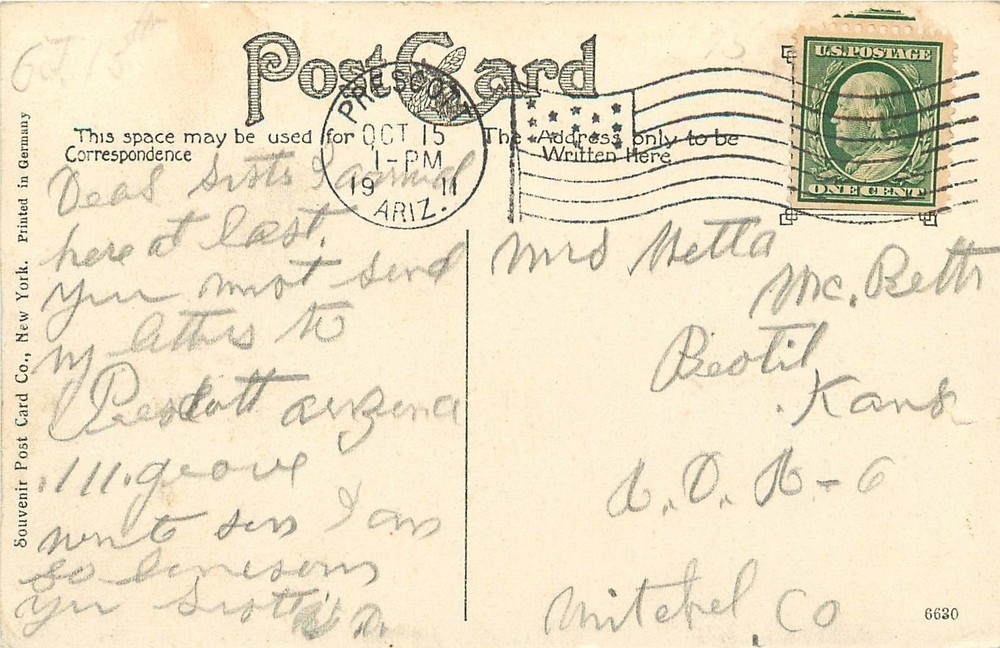 Oct 15th
Post Card
PRESCOTT
OCT 15
1-PM
1911
ARIZ.
U.S. POSTAGE
ONE CENT
This space may be used for
Correspondence
The Address only to be
Written Here
Dear here at last.
you must send
my letters to
Prescott
111. grove
I am
so lonesom
Mrs Metta
Mc. Beth
Kans
R. D. R-6
Mitchel Co
Souvenir Post Card Co., New York. Printed in Germany
6630